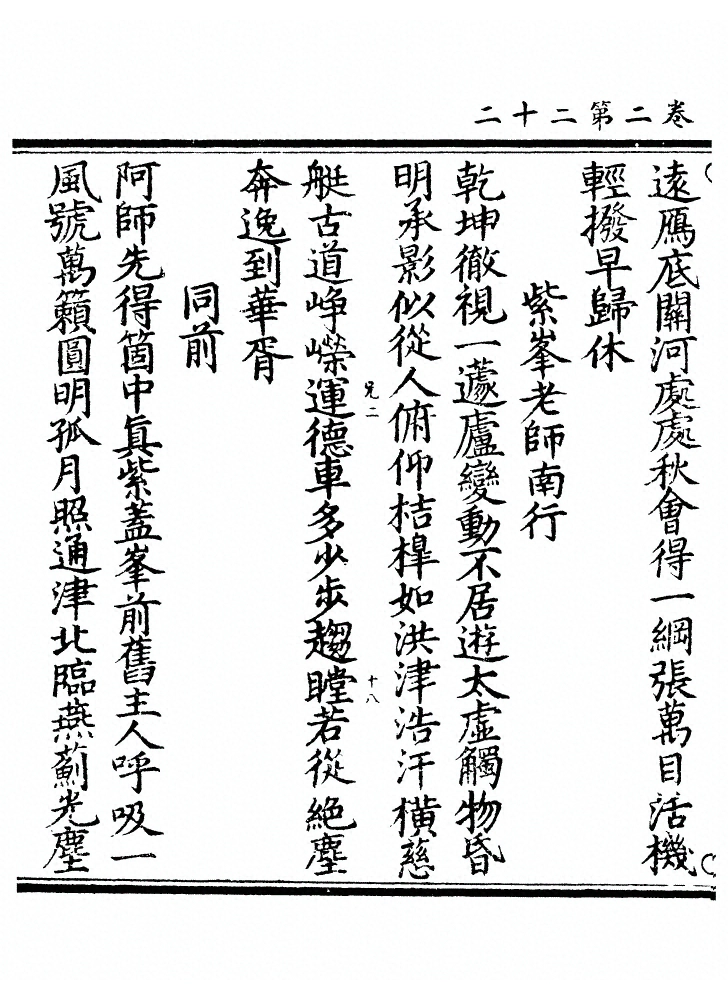 卷二第二十二
遠鴈底關河處處秋會得一綱張萬目活機
輕撥早歸休
紫峯老師南行
乾坤徹視一蘧廬變動不居遊太虛觸物昏
明承影似從人俯仰桔槹如洪津浩汗橫慈
艇古道崢嶸運德車多少步趨瞠若從絕塵
兄二
十八
奔逸到華胥
同前
阿師先得箇中眞紫蓋峯前舊主人呼吸一
風號萬籟圓明孤月照通津北臨燕薊光塵